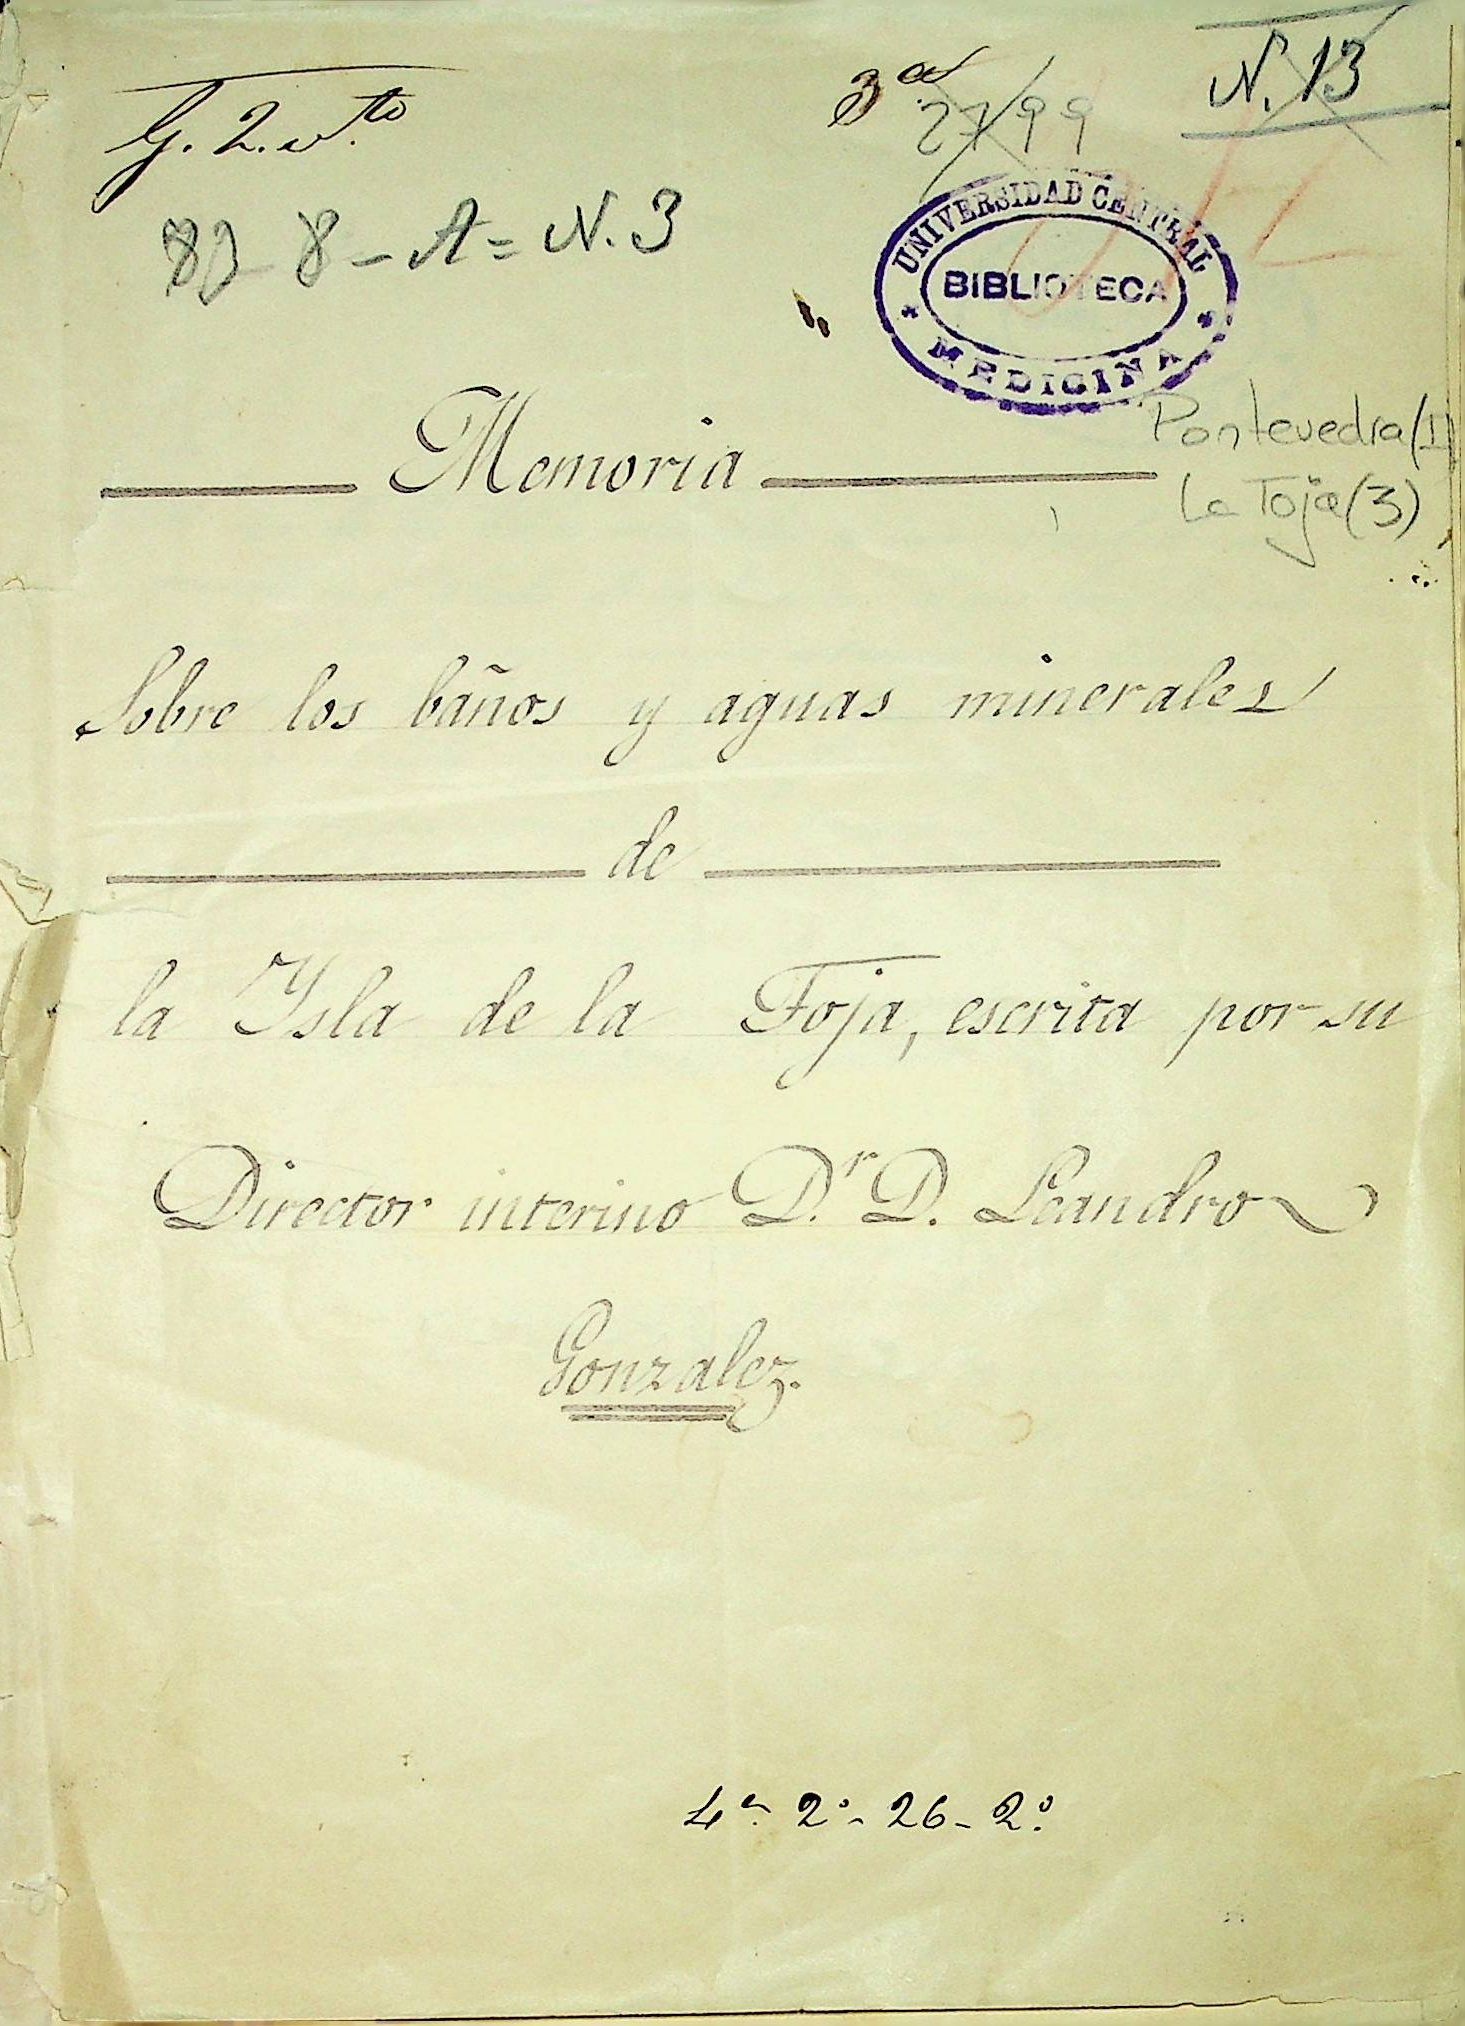 N. 13
3ª
2799
G. 2. vto
8 - A = N. 3
UNIVERSIDAD CENTRAL
BIBLIOTECA
MEDICINA
Pontevedra (1)
La Toja (3)
Memoria
Sobre los baños y aguas minerales
de
la Ysla de la Toja, escrita por su
Director interino D.r D. Leandro
Gonzalez.
4ª 2º - 26 - 2º